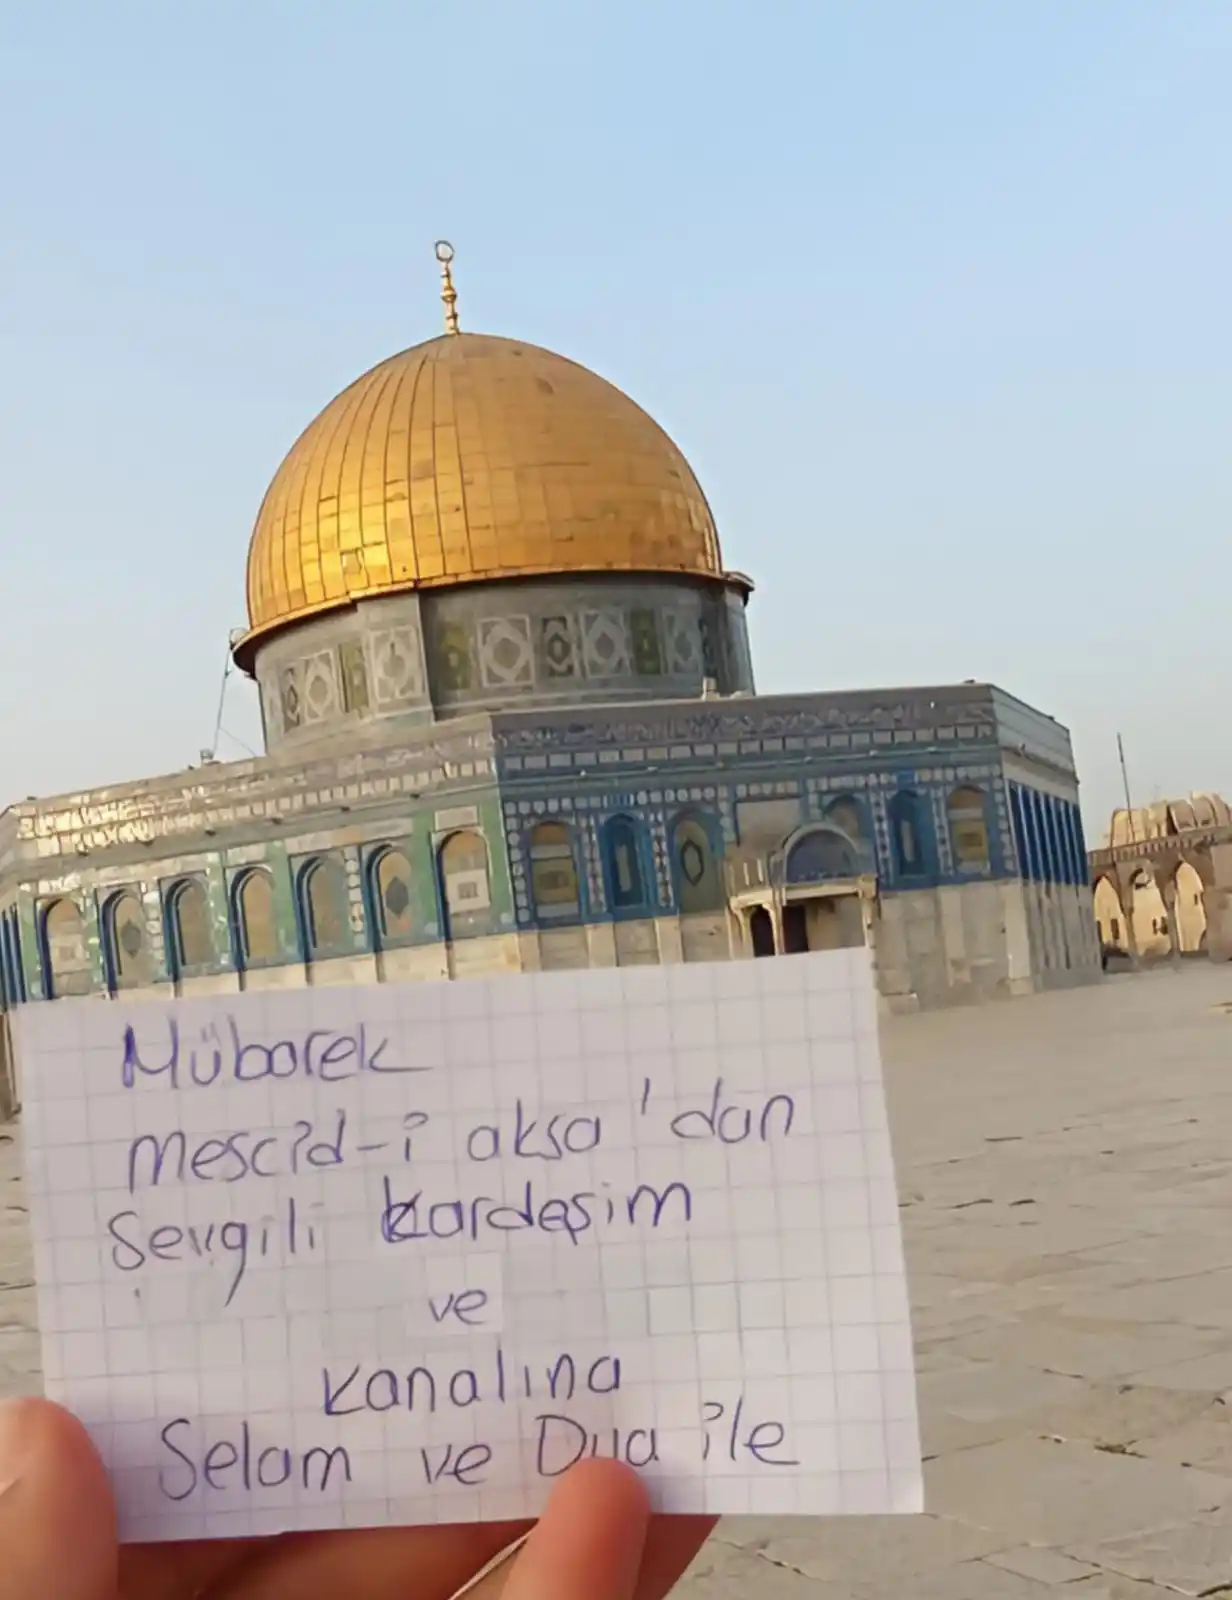 Mübarek
mescid-i aksa'dan
Sevgili kardeşim
ve
kanalına
Selam ve Dua ile